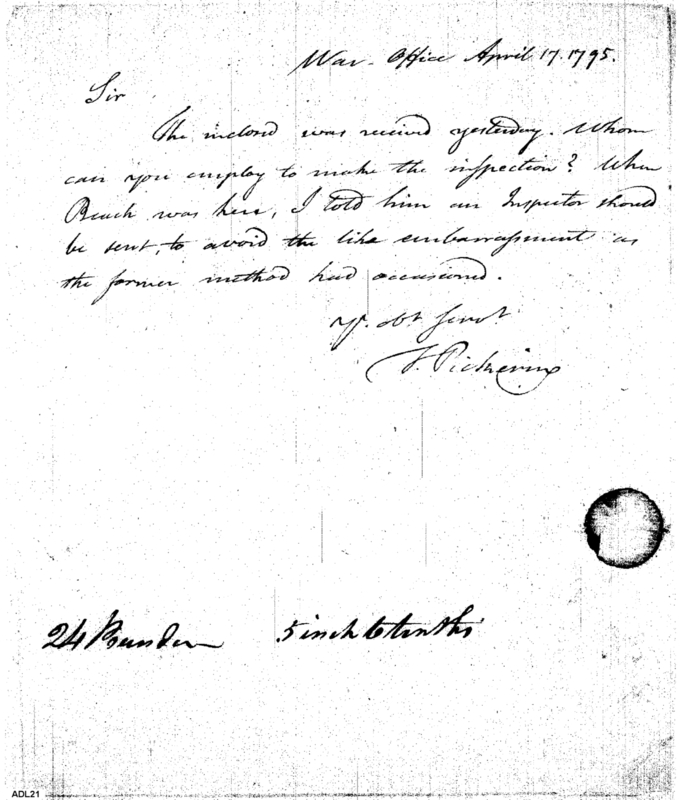 War-Office April 17. 1795.
Sir
The inclosd was received yesterday. Whom
can you employ to make the inspection? When
Beach was here, I told him an Inspector should
be sent, to avoid the like embarrassment as
the former method had occasioned.
Yr. obt servt.
T. Pickering
24 Pounder 5 inch 6 tenths
ADL21